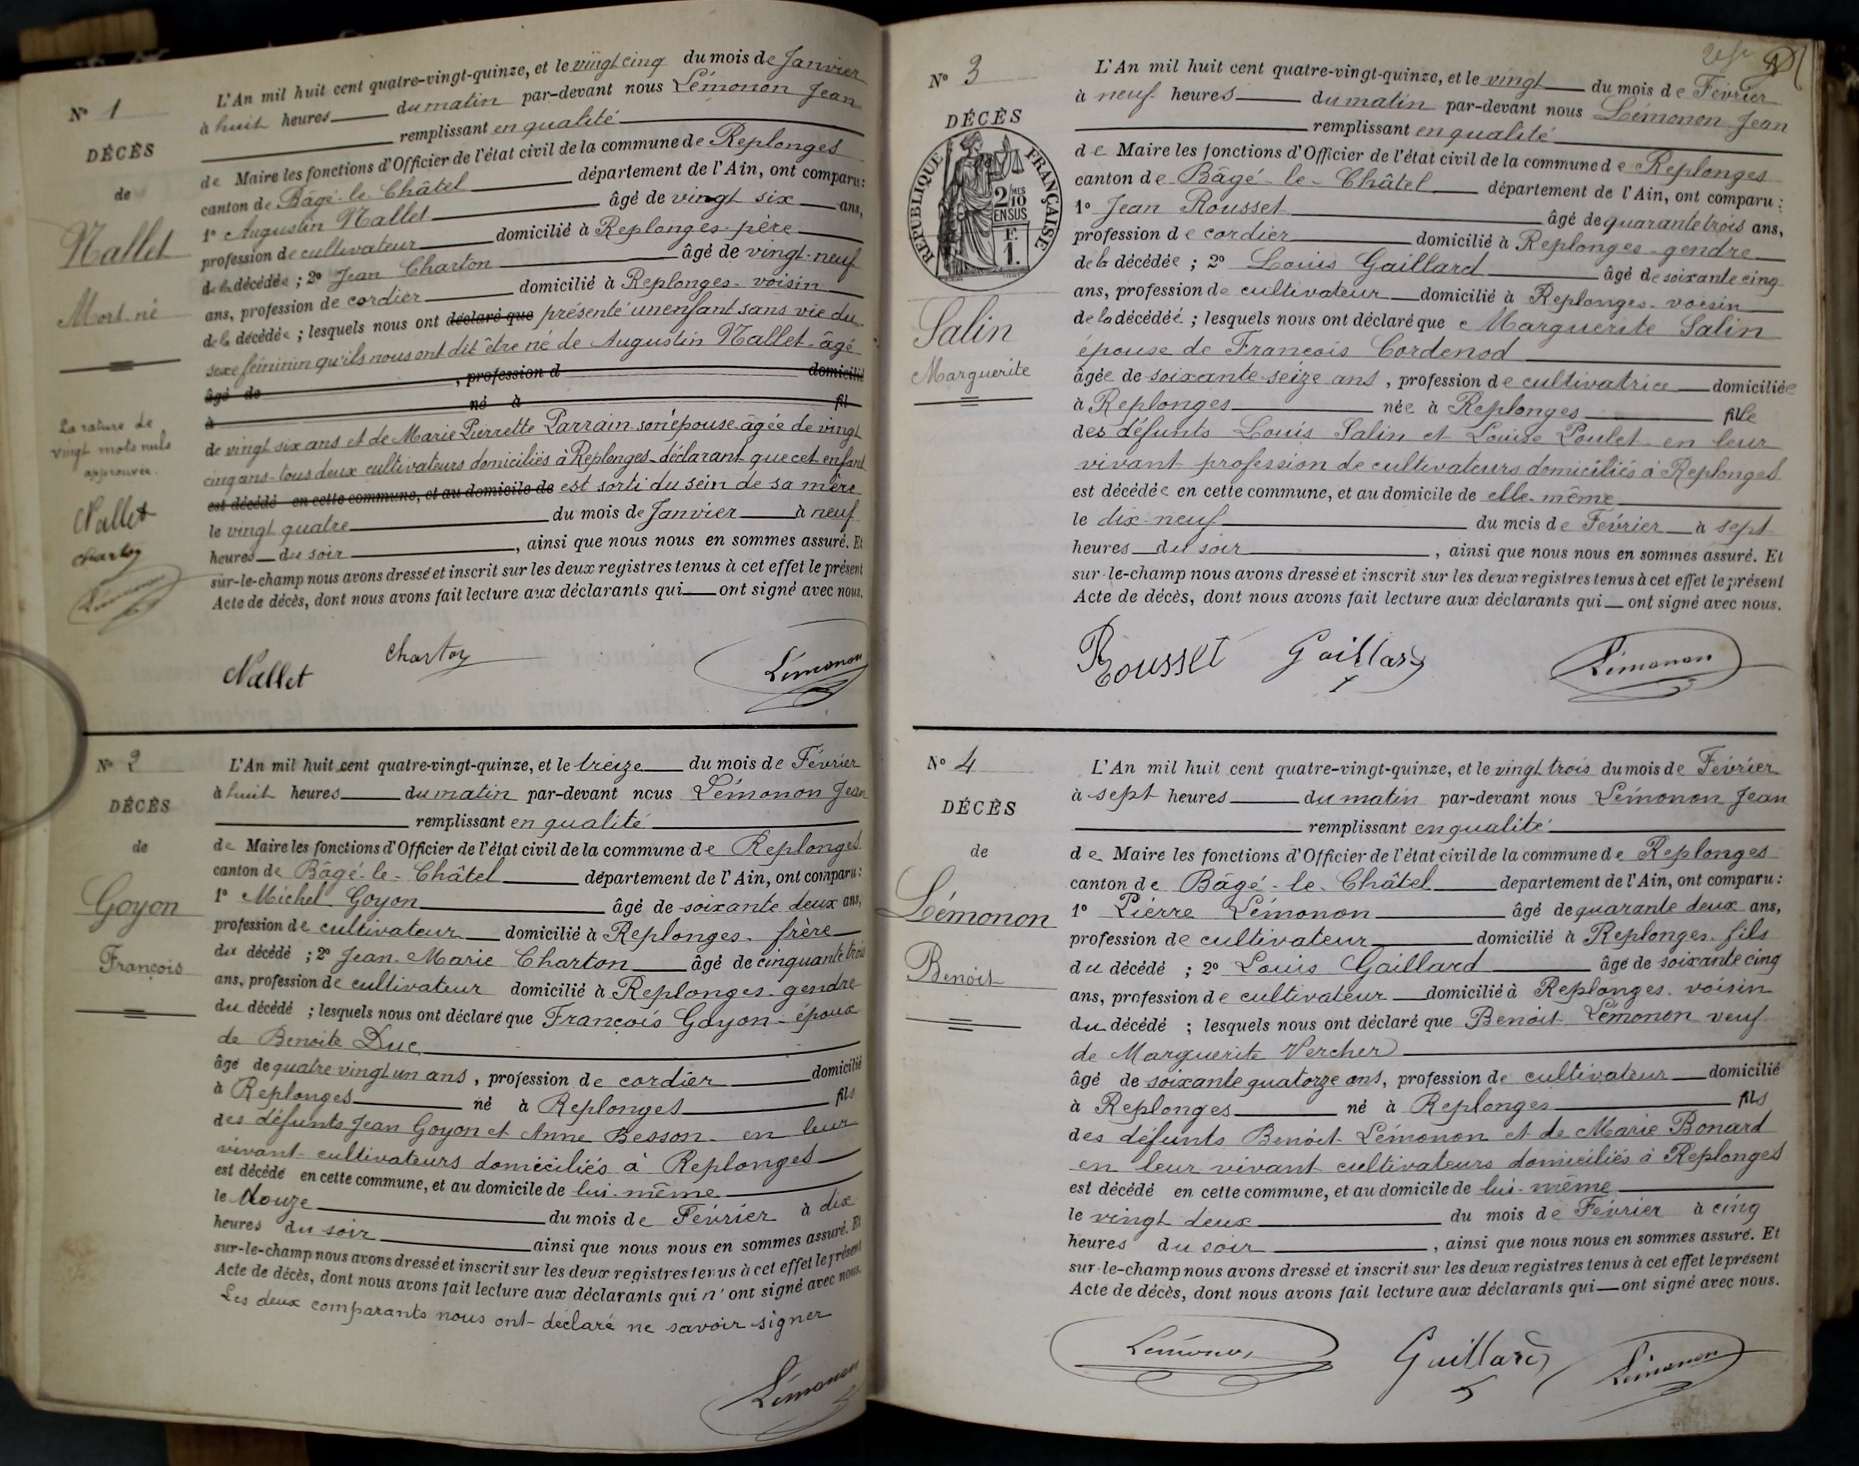 N° 1
DÉCÈS
de
Nallet
Mort-né
La rature de
vingt mots nuls
approuvée.
Nallet
Charton
Lémonon
L'An mil huit cent quatre-vingt-quinze, et le vingt cinq du mois de Janvier
à huit heures du matin par-devant nous Lémonon Jean
remplissant en qualité
de Maire les fonctions d'Officier de l'état civil de la commune de Replonges
canton de Bâgé-le-Châtel département de l'Ain, ont comparu :
1° Augustin Nallet âgé de vingt six ans,
profession de cultivateur domicilié à Replonges père
de la décédée ; 2° Jean Charton âgé de vingt-neuf
ans, profession de cordier domicilié à Replonges - voisin
de la décédée ; lesquels nous ont déclaré que présenté un enfant sans vie du
sexe féminin qu'ils nous ont dit être né de Augustin Nallet - âgé
âgé de , profession d domicilié
à né à fil
de vingt six ans et de Marie Pierrette Parrain son épouse âgée de vingt
cinq ans - tous deux cultivateurs domiciliés à Replonges - déclarant que cet enfant
est décédé en cette commune, et au domicile de est sorti du sein de sa mère
le vingt quatre du mois de Janvier à neuf
heures du soir , ainsi que nous nous en sommes assuré. Et
sur-le-champ nous avons dressé et inscrit sur les deux registres tenus à cet effet le présent
Acte de décès, dont nous avons fait lecture aux déclarants qui ont signé avec nous.
Nallet Charton Lémonon
N° 2
DÉCÈS
de
Goyon
François
L'An mil huit cent quatre-vingt-quinze, et le treize du mois de Février
à huit heures du matin par-devant nous Lémonon Jean
remplissant en qualité
de Maire les fonctions d'Officier de l'état civil de la commune de Replonges
canton de Bâgé-le-Châtel département de l'Ain, ont comparu :
1° Michel Goyon âgé de soixante deux ans,
profession de cultivateur domicilié à Replonges - frère
du décédé ; 2° Jean-Marie Charton âgé de cinquante trois
ans, profession de cultivateur domicilié à Replonges - gendre
du décédé ; lesquels nous ont déclaré que François Goyon - époux
de Benoite Duc
âgé de quatre vingt un ans , profession de cordier domicilié
à Replonges né à Replonges fils
des défunts Jean Goyon et Anne Besson - en leur
vivant cultivateurs domiciliés à Replonges
est décédé en cette commune, et au domicile de lui-même
le douze du mois de Février à dix
heures du soir ainsi que nous nous en sommes assuré. Et
sur-le-champ nous avons dressé et inscrit sur les deux registres tenus à cet effet le présent
Acte de décès, dont nous avons fait lecture aux déclarants qui n'ont signé avec nous.
Les deux comparants nous ont déclaré ne savoir signer
Lémonon
N° 3
DÉCÈS
RÉPUBLIQUE FRANÇAISE
2/10
EN SUS
F.
1.
Salin
Marguerite
L'An mil huit cent quatre-vingt-quinze, et le vingt du mois de Février
à neuf heures du matin par-devant nous Lémonon Jean
remplissant en qualité
de Maire les fonctions d'Officier de l'état civil de la commune de Replonges
canton de Bâgé-le-Châtel département de l'Ain, ont comparu :
1° Jean Rousset âgé de quarante trois ans,
profession de cordier domicilié à Replonges - gendre
de la décédée ; 2° Louis Gaillard âgé de soixante cinq
ans, profession de cultivateur domicilié à Replonges - voisin
de la décédée ; lesquels nous ont déclaré que Marguerite Salin
épouse de François Cordenod
âgée de soixante-seize ans , profession de cultivatrice domiciliée
à Replonges née à Replonges fille
des défunts Louis Salin et Louise Poulet en leur
vivant profession de cultivateurs domiciliés à Replonges
est décédée en cette commune, et au domicile de elle-même
le dix-neuf du mois de Février à sept
heures du soir , ainsi que nous nous en sommes assuré. Et
sur-le-champ nous avons dressé et inscrit sur les deux registres tenus à cet effet le présent
Acte de décès, dont nous avons fait lecture aux déclarants qui ont signé avec nous.
Rousset Gaillard Lémonon
N° 4
DÉCÈS
de
Lémonon
Benoit
L'An mil huit cent quatre-vingt-quinze, et le vingt trois du mois de Février
à sept heures du matin par-devant nous Lémonon Jean
remplissant en qualité
de Maire les fonctions d'Officier de l'état civil de la commune de Replonges
canton de Bâgé-le-Châtel departement de l'Ain, ont comparu :
1° Pierre Lémonon âgé de quarante deux ans,
profession de cultivateur domicilié à Replonges - fils
du décédé ; 2° Louis Gaillard âgé de soixante cinq
ans, profession de cultivateur domicilié à Replonges - voisin
du décédé ; lesquels nous ont déclaré que Benoit Lémonon veuf
de Marguerite Vercher
âgé de soixante quatorze ans, profession de cultivateur domicilié
à Replonges né à Replonges fils
des défunts Benoit Lémonon et de Marie Bonard
en leur vivant cultivateurs domiciliés à Replonges
est décédé en cette commune, et au domicile de lui-même
le vingt deux du mois de Février à cinq
heures du soir , ainsi que nous nous en sommes assuré. Et
sur-le-champ nous avons dressé et inscrit sur les deux registres tenus à cet effet le présent
Acte de décès, dont nous avons fait lecture aux déclarants qui ont signé avec nous.
Lémonon Gaillard Lémonon